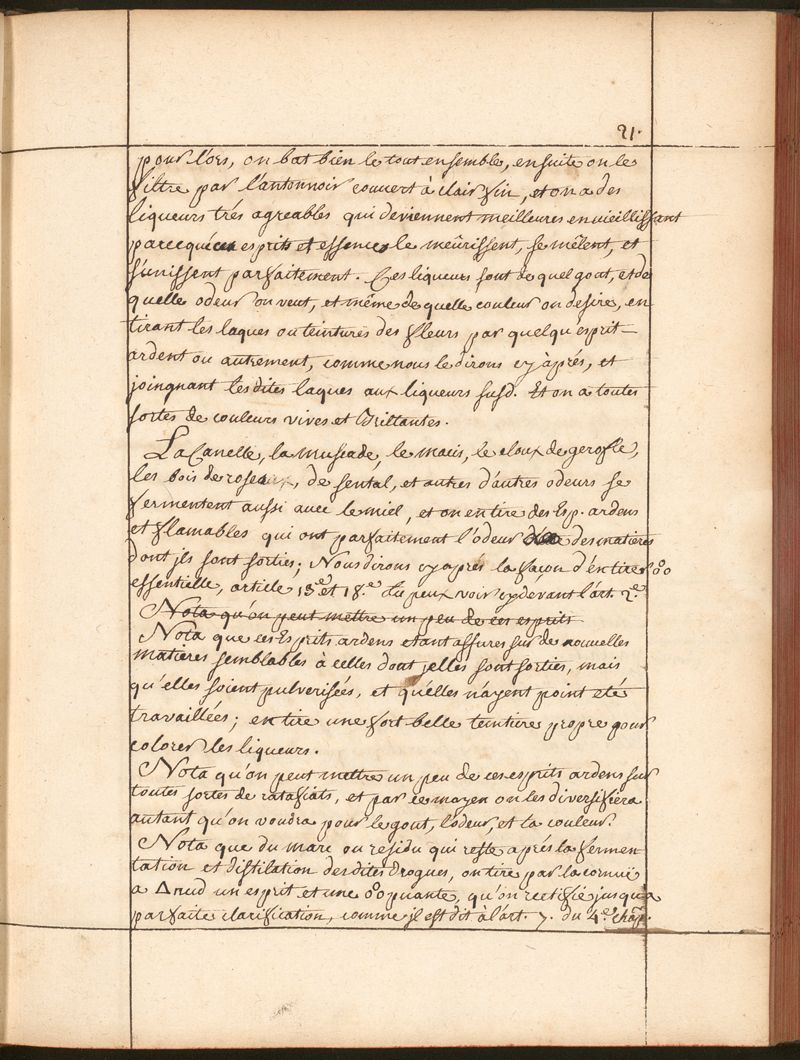 21.
pour l'ors, on bat bien le tout ensemble, ensuite on le
filtre par l'antonnoir couvert à clair fin, et on a des
liqueurs trés agreables qui deviennent meilleures en vieillissant
parceque ces esprits et essences le meûrissent, se mêlent, et
s'unissent parfaitement. Ces liqueurs sont de quel gout, et de
quelle odeur on veut, et même de quelle couleur on desire, en
tirant les laques ou teintures des fleurs par quelqu'esprit
ardent ou autrement, comme nous le dirons cy àprés, et
joingnant lesdites laques aux liqueurs susd. Et on a toutes
sortes de couleurs vives et Brillantes.
La Canelle, la muscade, le macis, le cloux de gerofle,
les bois de roseaux, de sental, et autres d'autres odeurs se
fermentent aussi avec le miel, et on en tire des Esp. ardens
et flamables qui ont parfaitement l'odeur des matieres
dont jls sont sorties; Nous dirons cy aprés la façon d'en tirer
essentielle, article 13.e et 18.e tu peux voir cy devant l'art. 2.e
Nota qu'on peut mettre un peu de ces esprits
Nota que ces Esprits ardens etant assures sur de nouvelles
matieres semblables à celles dont jelles sont sorties, mais
qu'elles soient pulverisées, et qu'elles n'ayent point eté
travaillées; en tire une fort belle teinture propre pour
colorer les liqueurs.
Nota qu'on peut mettre un peu de ces esprits ardens sur
toutes sortes de ratafiats, et par ce moyen on les diversifiera
autant qu'on voudra pour le gout, l'odeur, et la couleur.
Nota que du marc ou residu qui reste aprés la fermen
tation et distilation desdites drogues, on tire par la cornuë
a Δ nud un esprit et une puante, qu'on rectifie jusqu'a
parfaite clarification, comme jl est dit à l'art. 7. du 4.e chap.